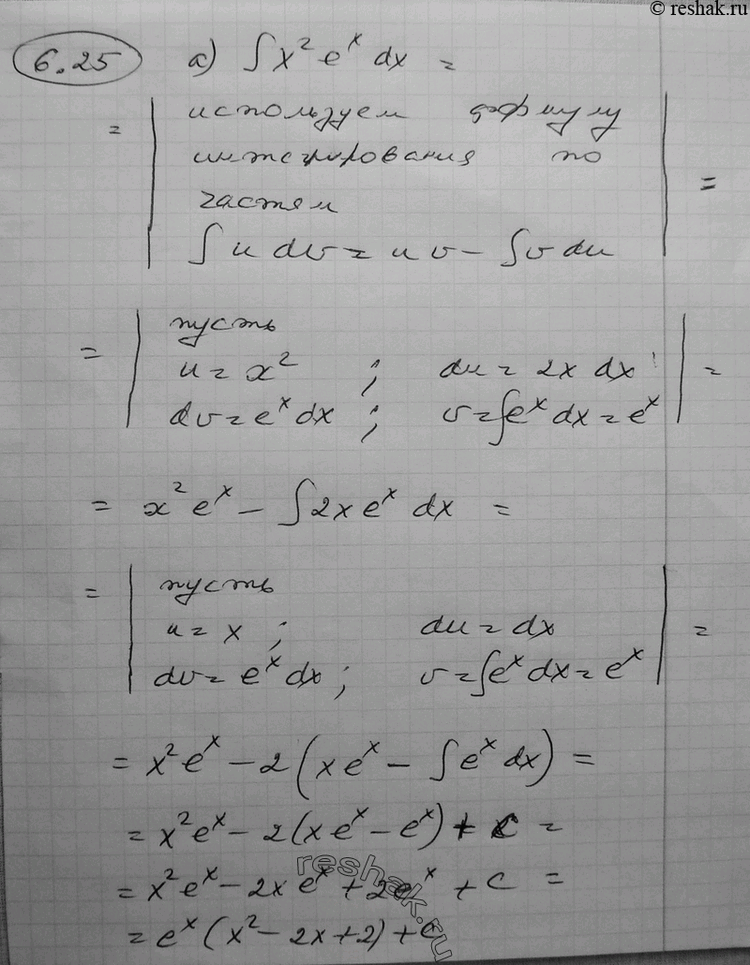 © reshak.ru
6.25 а) ∫x² eˣ dx =
= | используем формулу
интегрирования по
частям
∫u dv = uv - ∫v du | =
= | пусть
u = x² ; du = 2x dx
dv = eˣ dx ; v = ∫eˣ dx = eˣ | =
= x² eˣ - ∫2x eˣ dx =
= | пусть
u = x ; du = dx
dv = eˣ dx ; v = ∫eˣ dx = eˣ | =
= x² eˣ - 2(x eˣ - ∫eˣ dx) =
= x² eˣ - 2(x eˣ - eˣ) + C =
= x² eˣ - 2x eˣ + 2eˣ + C =
= eˣ (x² - 2x + 2) + C
reshak.ru